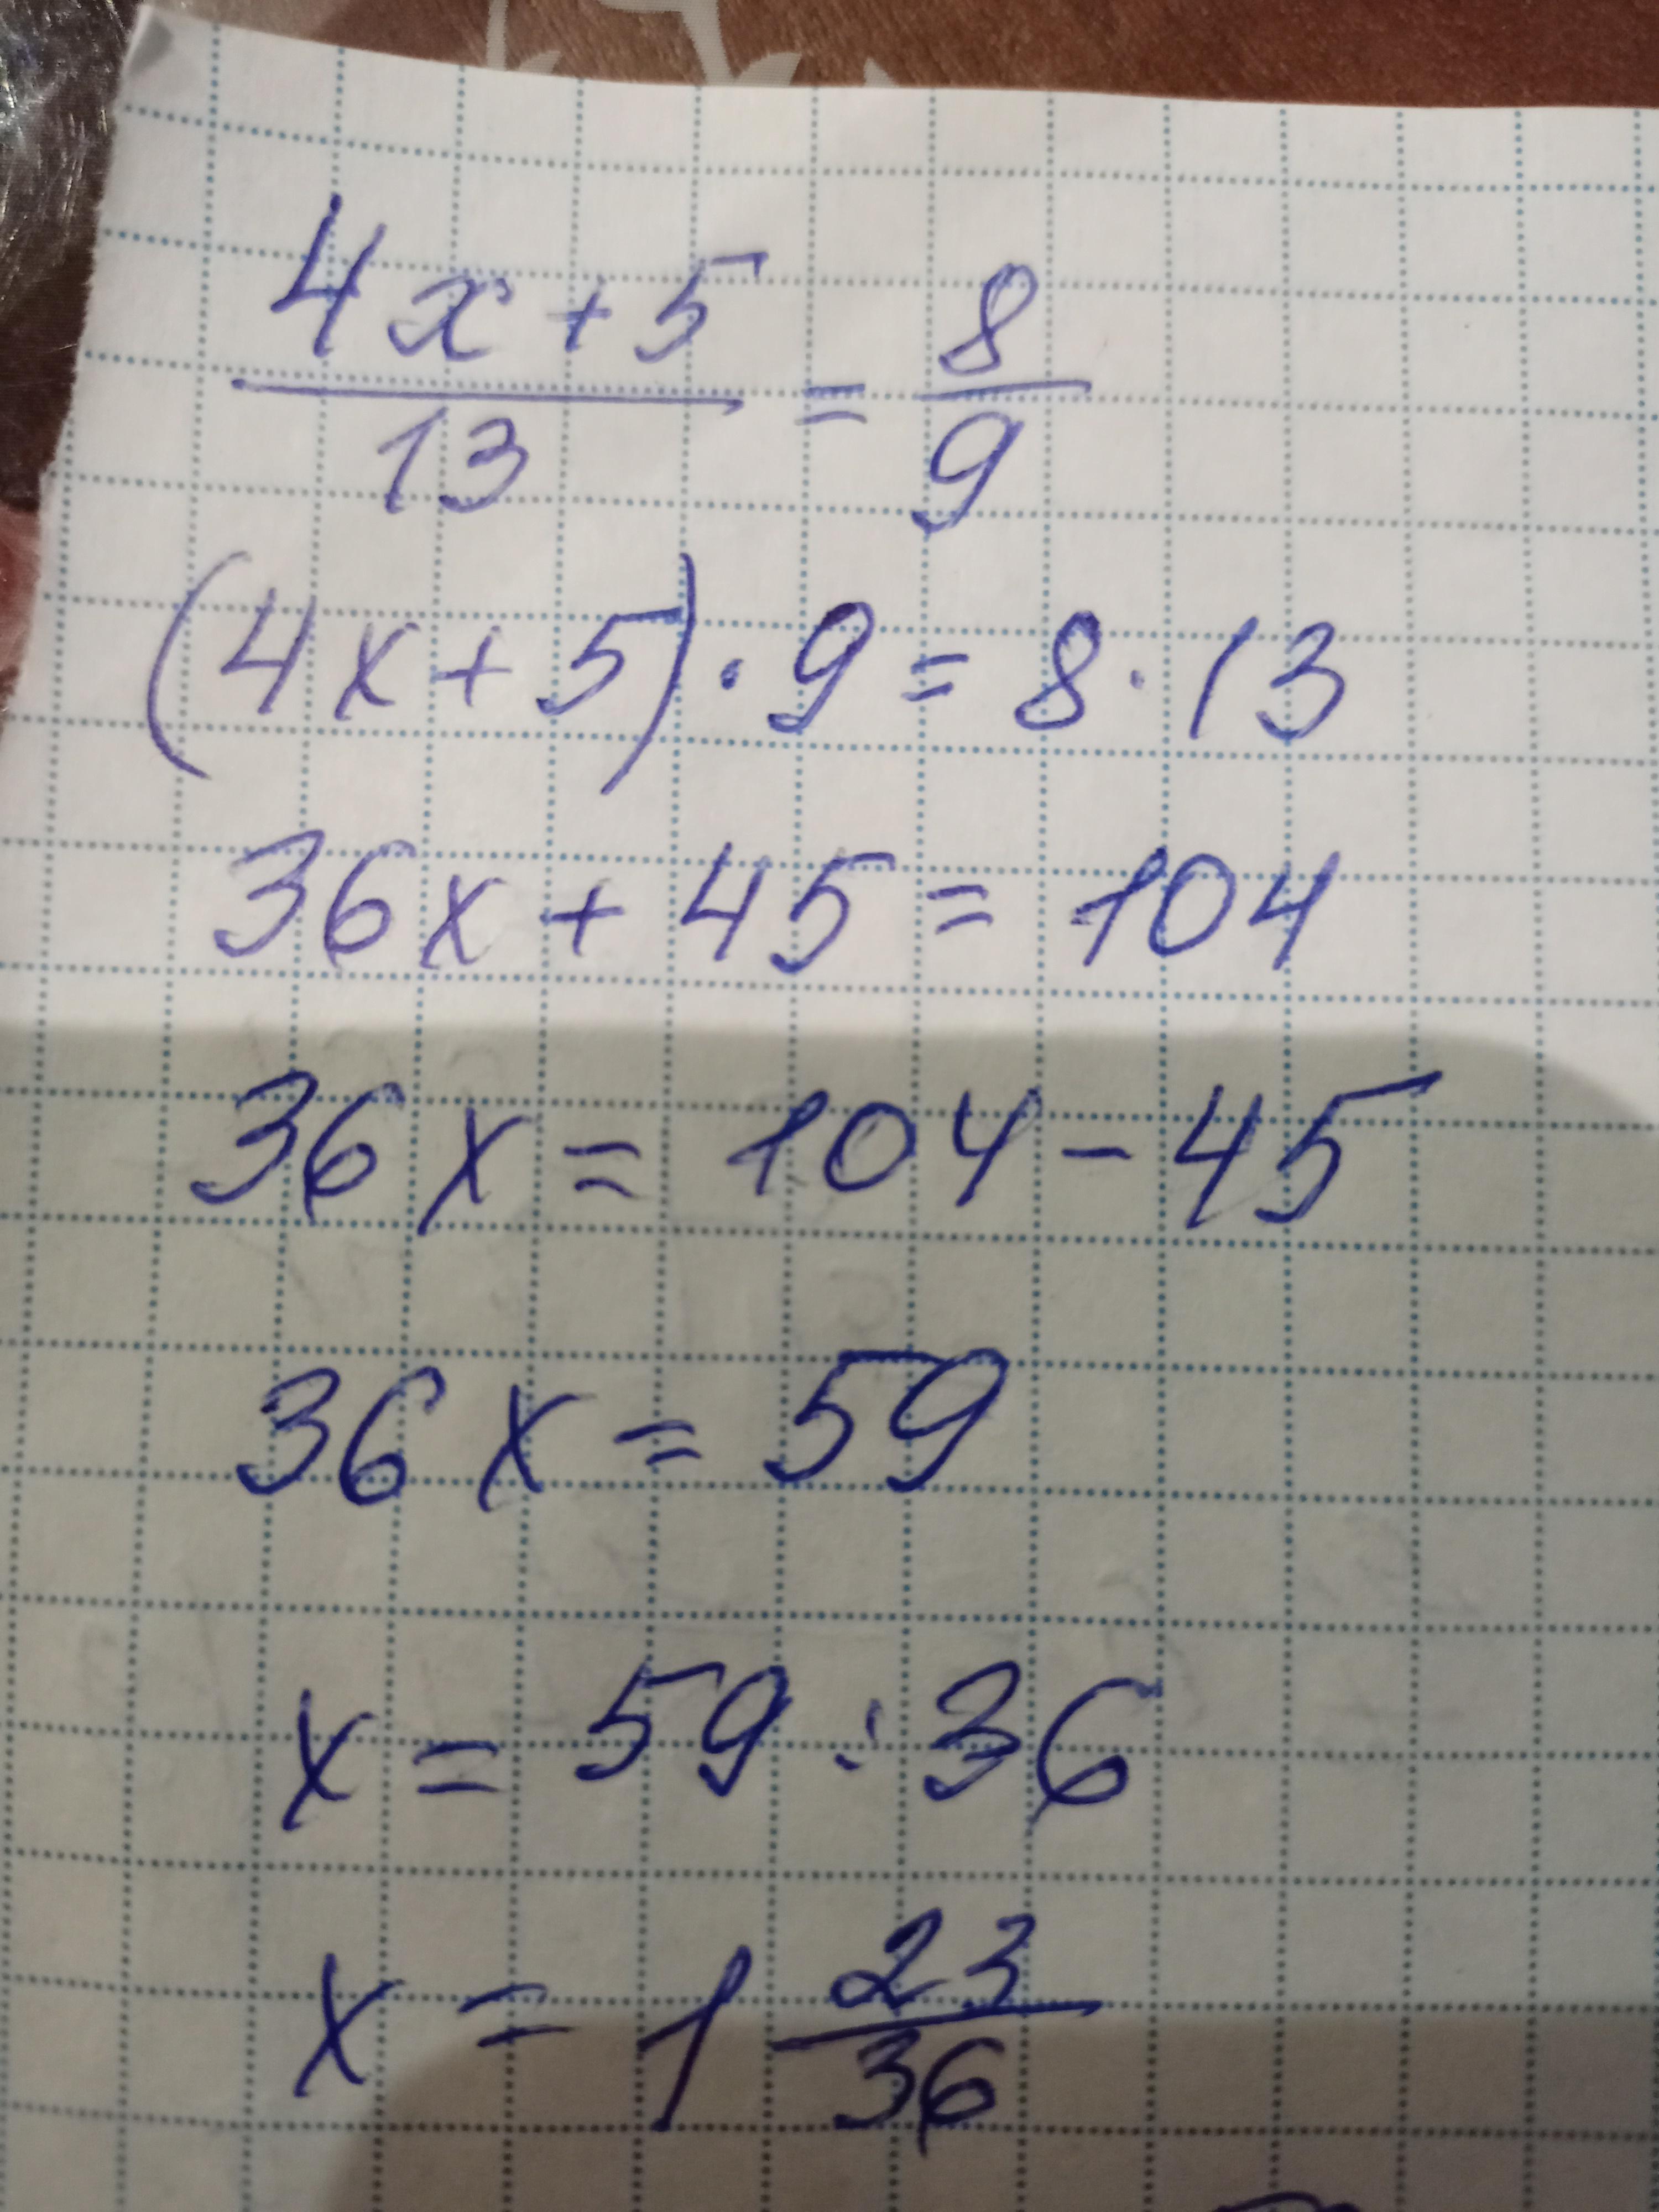 (4x+5)/13 = 8/9
(4x+5)·9=8·13
36x+45=104
36x=104-45
36x=59
x=59:36
x=1 23/36